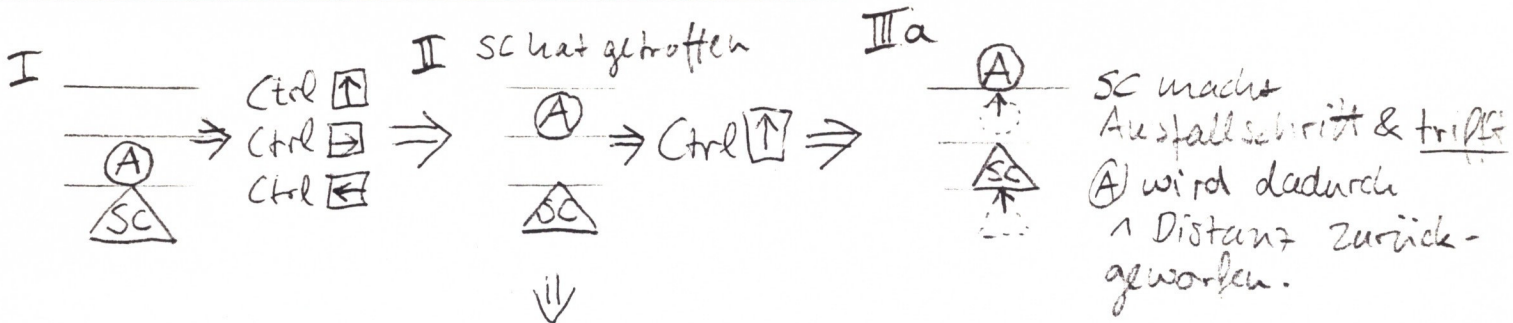 I
A
SC
Ctrl ↑
Ctrl →
Ctrl ←
II SC hat getroffen
A
SC
Ctrl ↑
III a
A
SC
SC macht
Ausfallschritt & trifft
A wird dadurch
1 Distanz zurück-
geworfen.